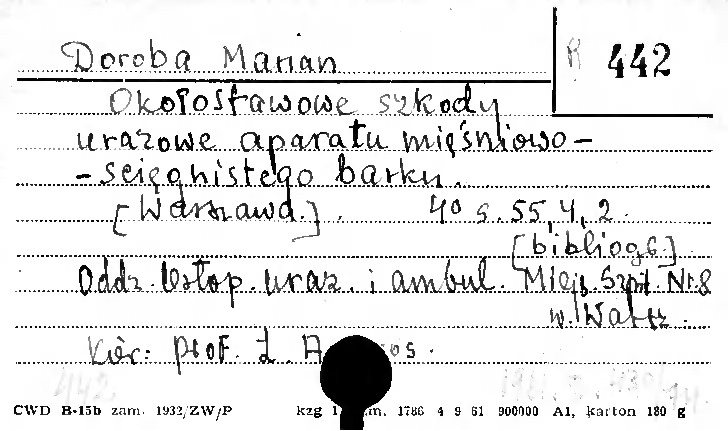 Doroba Marian
R 442
Okołostawowe szkody
urazowe aparatu mięśniowo-
-ścięgnistego barku.
[Warszawa.]. 4° s. 55, 4, 2.
[bibliogr.]
Oddz. Ustop. uraz. i ambul. Miejs. Szpit. Nr. 8
w. Warsz.
Kier: prof. L.
442
CWD B-15b zam. 1932/ZW/P kzg 1786 4 9 61 900000 A1, karton 180 g